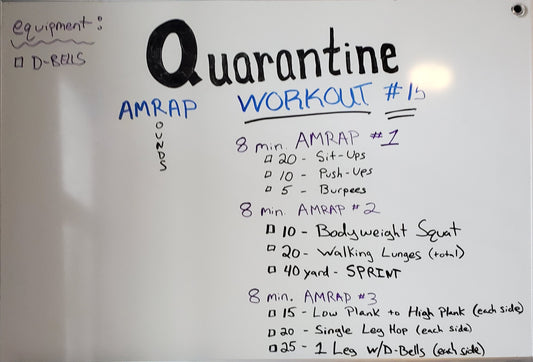 equipment:
D-BELLS
Quarantine
WORKOUT #15
AMRAP
OUNDS
8 min. AMRAP #1
20 - Sit-Ups
10 - Push-Ups
5 - Burpees
8 min. AMRAP #2
10 - Bodyweight Squat
20 - Walking Lunges (total)
40 yard - SPRINT
8 min. AMRAP #3
15 - Low Plank to High Plank (each side)
20 - Single Leg Hop (each side)
25 - 1 Leg W/D-Bells (each side)